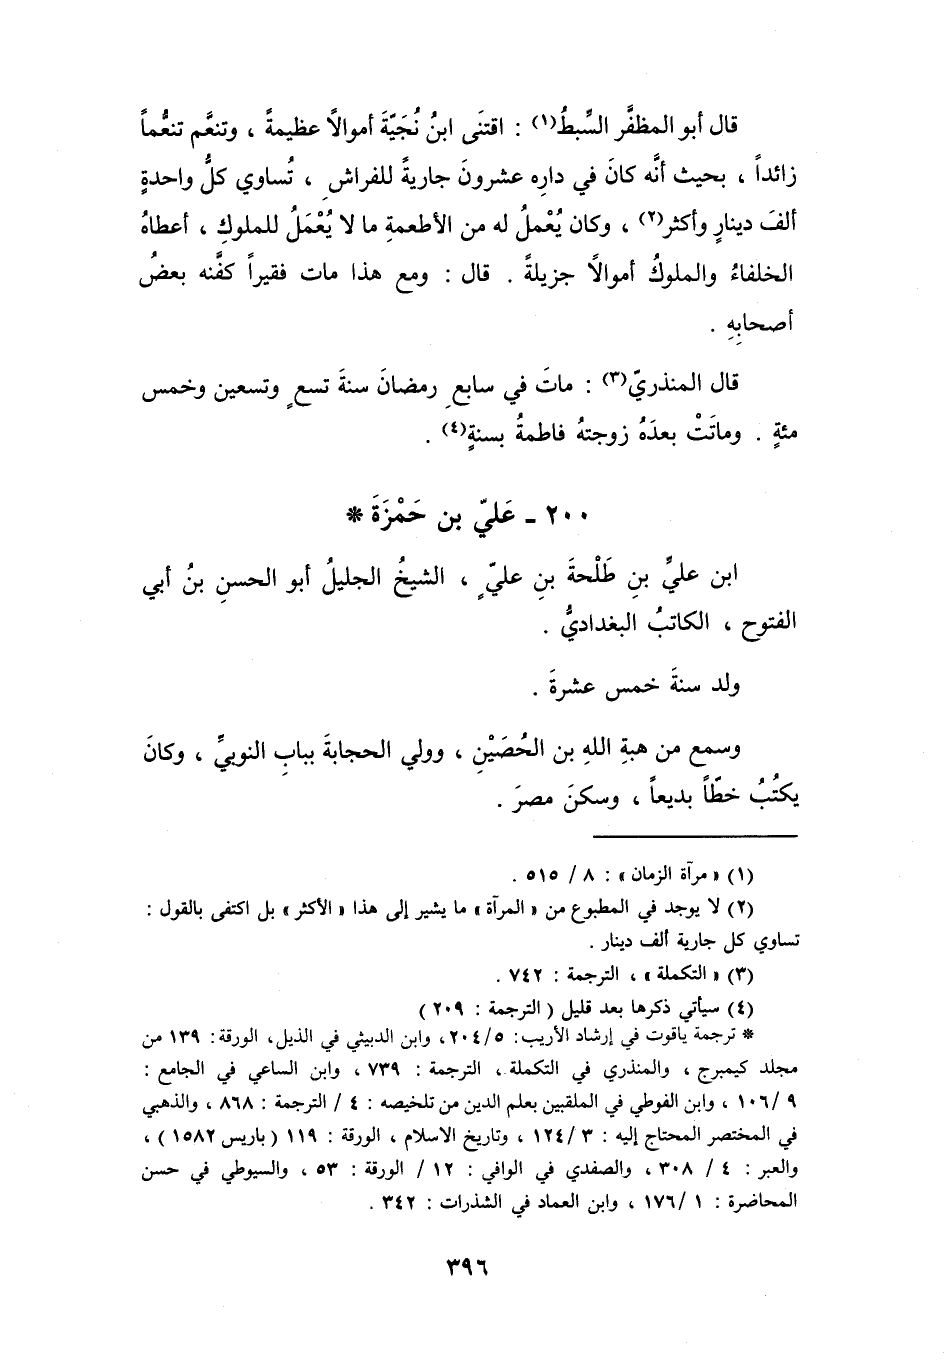 قال أبو المظفَّر السِّبطُ(١) : اقتنَى ابنُ نُجَيَّةَ أموالاً عظيمةً ، وتنعَّم تنعُّماً
زائداً ، بحيث أنَّه كانَ في دارِه عشرونَ جاريةً للفراشِ ، تُساوي كلُّ واحدةٍ
ألفَ دينارٍ وأكثر(٢) ، وكان يُعْملُ له من الأطعمةِ ما لا يُعْمَلُ للملوكِ ، أعطاهُ
الخلفاءُ والملوكُ أموالاً جزيلةً . قال : ومع هذا مات فقيراً كفَّنه بعضُ
أصحابِهِ .
قال المنذريّ(٣) : ماتَ في سابعِ رمضانَ سنةَ تسعٍ وتسعين وخمس
مئةٍ . وماتَتْ بعدَهُ زوجتهُ فاطمةُ بسنةٍ(٤) .
٢٠٠ ـ عَليّ بن حَمْزَةَ *
ابن عليِّ بنِ طَلْحةَ بنِ عليٍّ ، الشيخُ الجليلُ أبو الحسنِ بنُ أبي
الفتوح ، الكاتبُ البغداديُّ .
ولد سنةَ خمس عشرةَ .
وسمع من هبةِ اللهِ بن الحُصَيْنِ ، وولي الحجابةَ ببابِ النوبيِّ ، وكانَ
يكتُبُ خطّاً بديعاً ، وسكنَ مصرَ .
(١) « مرآة الزمان » : ٨ / ٥١٥ .
(٢) لا يوجد في المطبوع من « المرآة » ما يشير إلى هذا « الأكثر » بل اكتفى بالقول :
تساوي كل جارية ألف دينار .
(٣) « التكملة » ، الترجمة : ٧٤٢ .
(٤) سيأتي ذكرها بعد قليل ( الترجمة : ٢٠٩ )
* ترجمة ياقوت في إرشاد الأريب : ٥/ ٢٠٤، وابن الدبيثي في الذيل، الورقة: ١٣٩ من
مجلد كيمبرج ، والمنذري في التكملة ، الترجمة : ٧٣٩ ، وابن الساعي في الجامع :
٩ /١٠٦ ، وابن الفوطي في الملقبين بعلم الدين من تلخيصه : ٤ / الترجمة : ٨٦٨ ، والذهبي
في المختصر المحتاج إليه : ٣ /١٢٤ ، وتاريخ الاسلام ، الورقة : ١١٩ ( باريس ١٥٨٢ ) ،
والعبر : ٤ / ٣٠٨ ، والصفدي في الوافي : ١٢ / الورقة : ٥٣ ، والسيوطي في حسن
المحاضرة : ١ /١٧٦ ، وابن العماد في الشذرات : ٣٤٢ .
٣٩٦